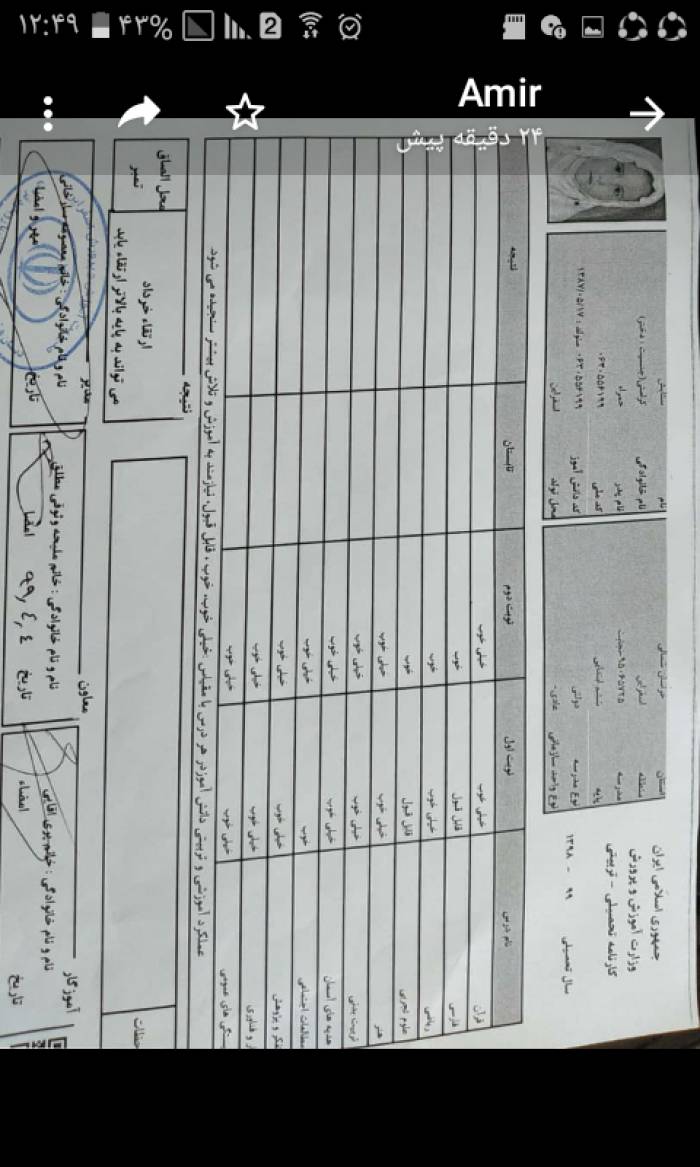 ۱۲:۴۹
۴۳%
2
Amir
۲۴ دقیقه پیش
جمهوری اسلامی ایران
وزارت آموزش و پرورش
کارنامه تحصیلی - تربیتی
سال تحصیلی ۹۹ - ۱۳۹۸
استان خراسان شمالی
منطقه اسفراین
مدرسه
پایه ششم ابتدایی
نوع مدرسه دولتی
نوع واحد سازمانی عادی
نام ستایش
نام خانوادگی (جنسیت : دختر)
نام پدر حمزه
کد ملی ۰۶۳۰۵۵۶۱۹۹
کد دانش آموز ۰۶۳۰۵۵۶۱۹۹ متولد : ۱۳۸۷/۰۵/۱۷
محل تولد اسفراین
نام درس نوبت اول نوبت دوم تابستان نتیجه
قرآن خیلی خوب خیلی خوب
فارسی قابل قبول خوب
ریاضی خیلی خوب خوب
علوم تجربی قابل قبول خوب
هنر خیلی خوب خیلی خوب
تربیت بدنی خیلی خوب خیلی خوب
هدیه های آسمان خیلی خوب خیلی خوب
مطالعات اجتماعی خوب خیلی خوب
تفکر و پژوهش خیلی خوب خیلی خوب
کار و فناوری خیلی خوب خیلی خوب
خیلی خوب خیلی خوب
عملکرد آموزشی و تربیتی دانش آموز در هر درس با مقیاس : خیلی خوب، خوب ، قابل قبول، نیازمند به آموزش و تلاش بیشتر سنجیده می شود.
نتیجه
ارتقاء خرداد
می تواند به پایه بالاتر ارتقاء یابد
محل الصاق
تمبر
آموزگار
نام و نام خانوادگی : خانم
تاریخ امضاء
معاون
نام و نام خانوادگی : خانم ملیحه وثوقی مطلق
تاریخ ۹۹,۴,۴ امضا
مدیر
نام و نام خانوادگی : خانم معصومه
تاریخ مهر و امضاء